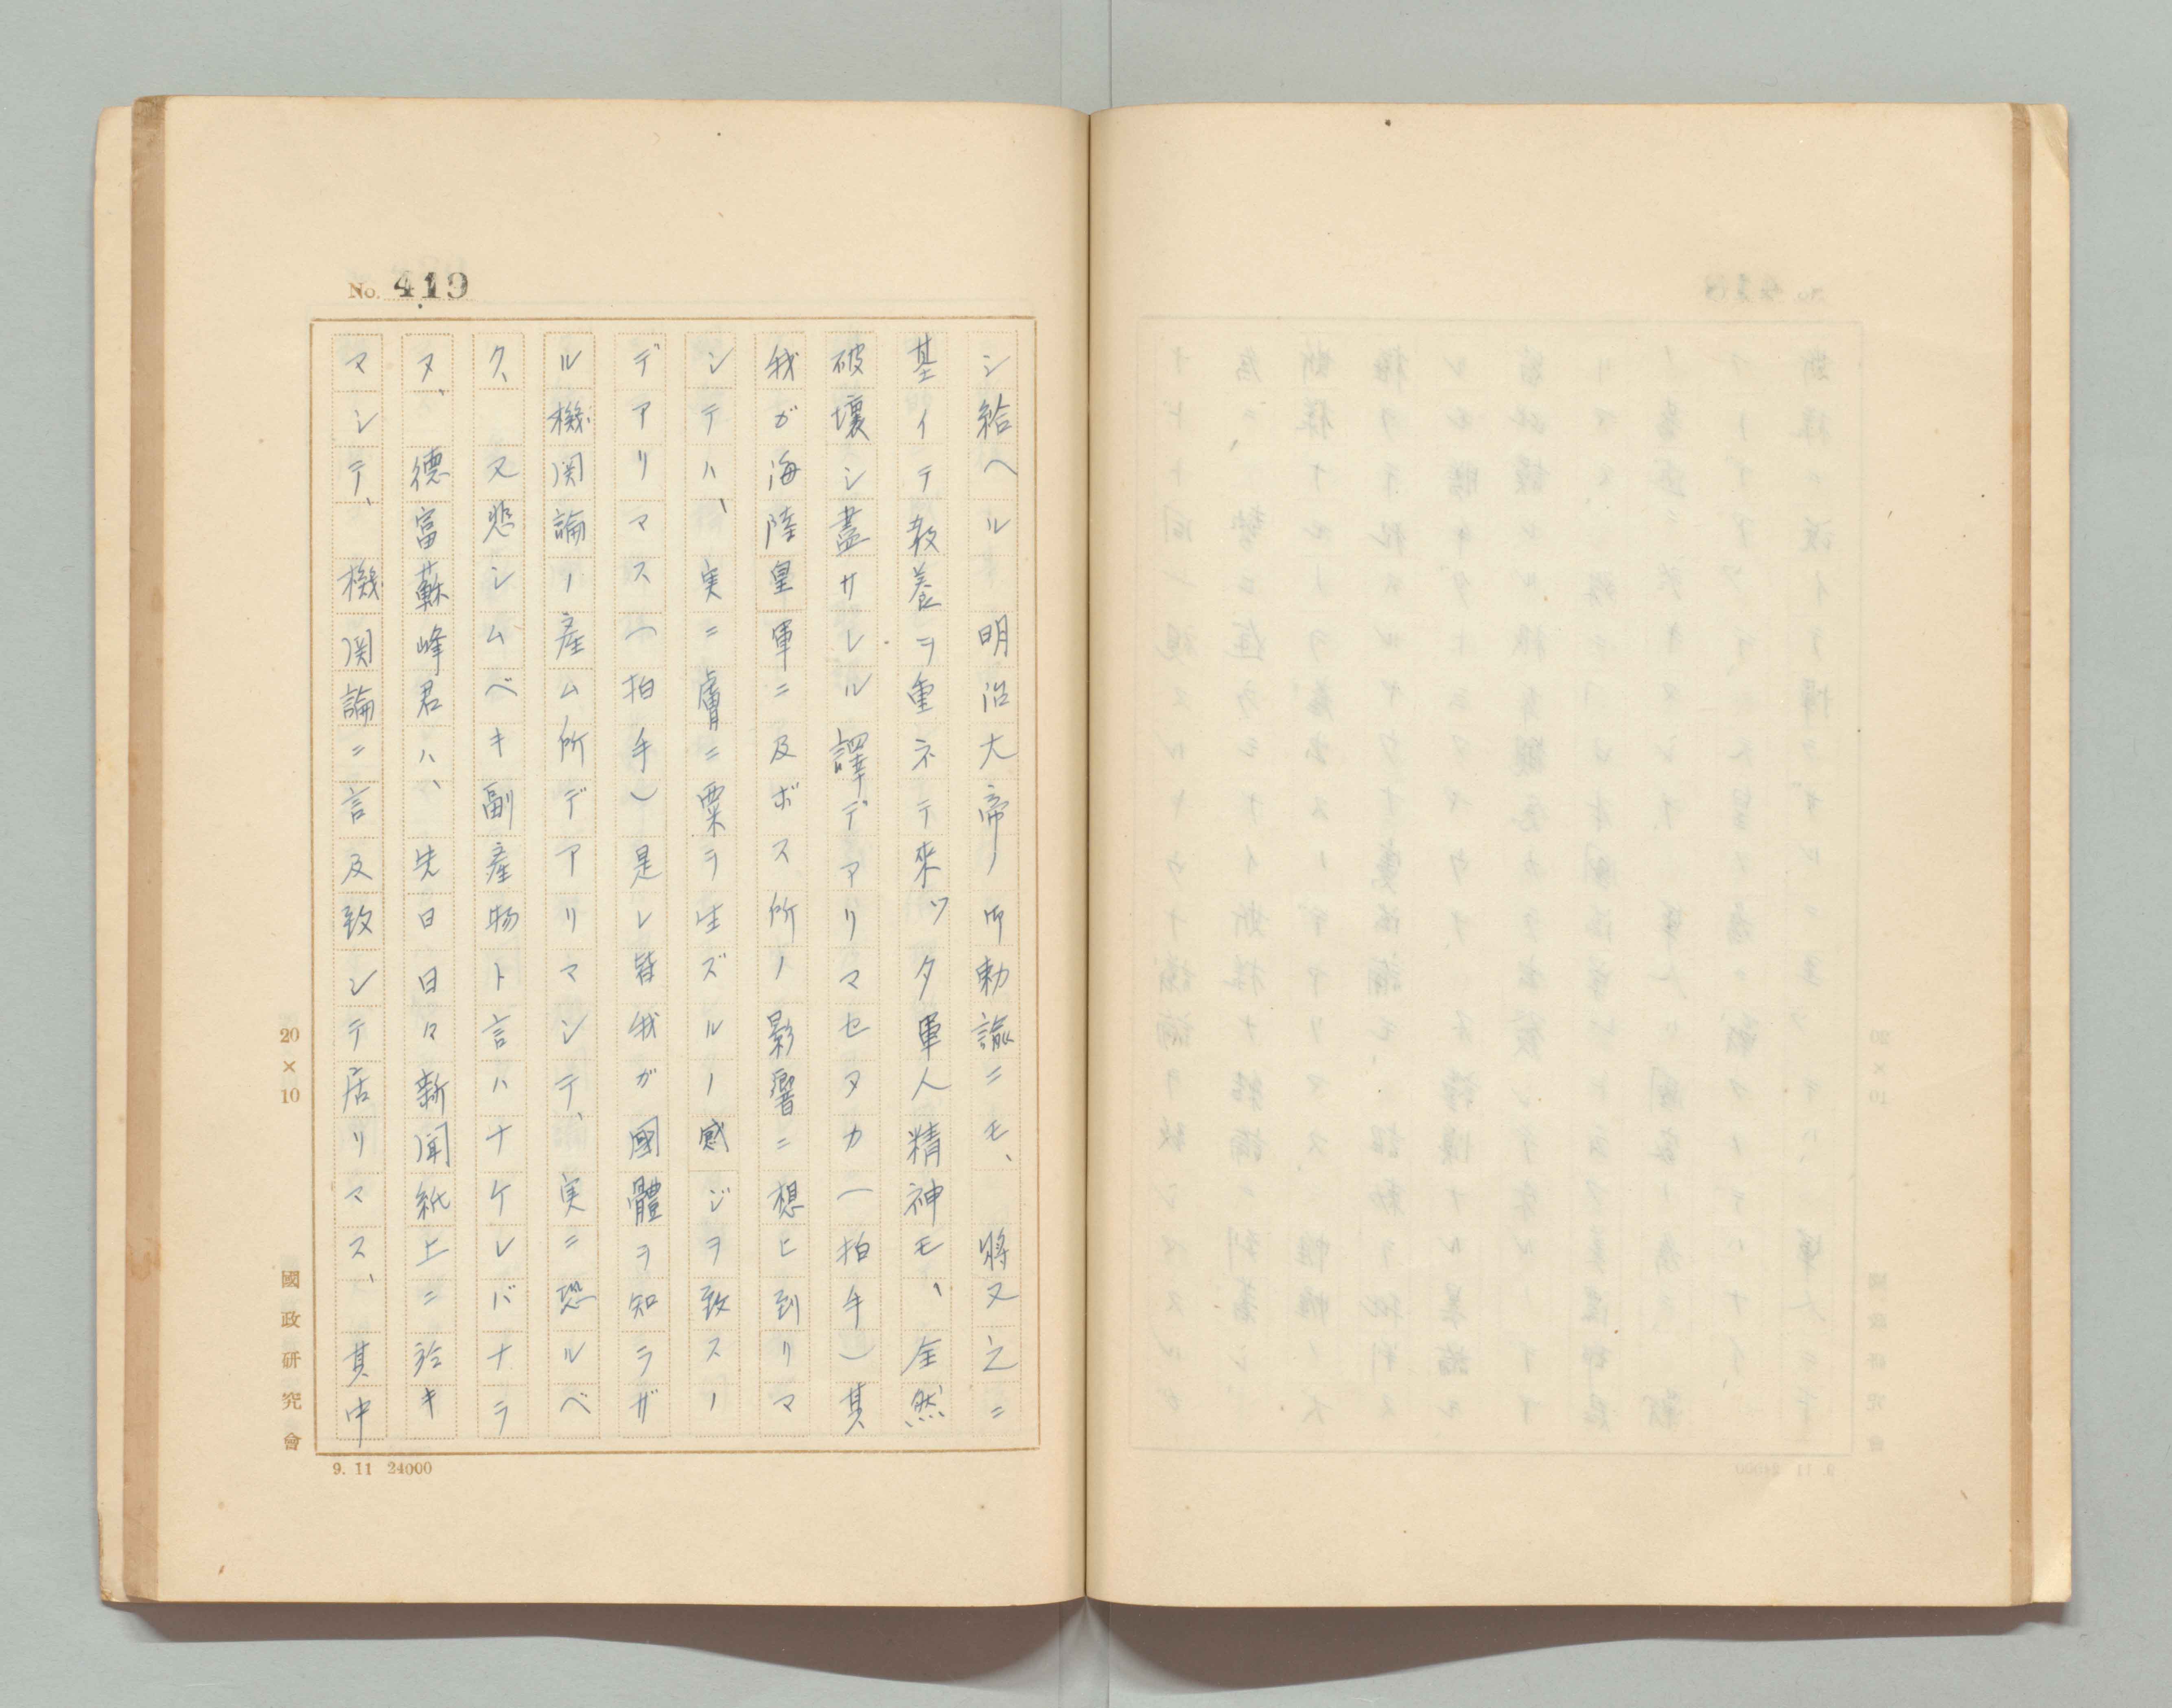 No. 419
シ給ヘル 明治大帝ノ御勅諭ニモ、 将又之ニ
基イテ教養ヲ重ネテ來ツタ軍人精神モ、全然
破壞シ盡サレル譯デアリマセヌカ(拍手)其
我ガ海陸皇軍ニ及ボス所ノ影響ニ想ヒ到リマ
シテハ、実ニ膚ニ粟ヲ生ズルノ感ジヲ致スノ
デアリマス(拍手)是レ皆我ガ國體ヲ知ラザ
ル機関論ノ産ム所デアリマシテ、実ニ恐ルベ
ク、 又悲シムベキ副產物ト言ハナケレバナラ
ヌ、 德富蘇峰君ハ、先日日々新聞紙上ニ於キ
マシテ、 機関論ニ言及致シテ居リマス、其中
20×10
國政研究會
9. 11 24000